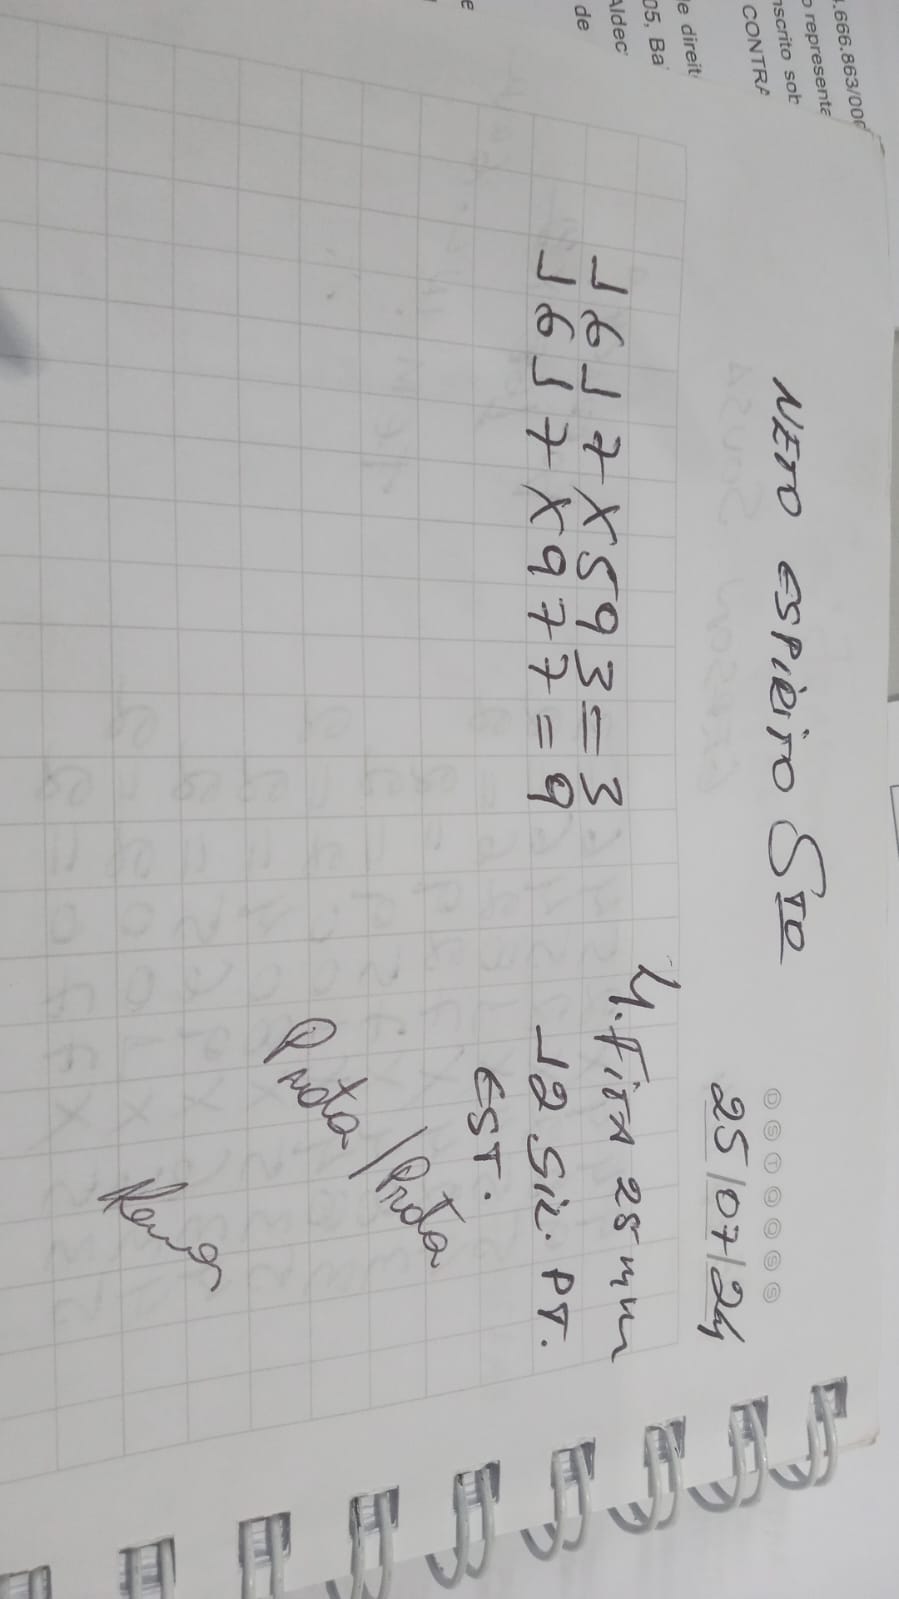 4.666.863/000
o representa
nscrito sob
CONTRA
le direit
05, Ba
Aldeci
de
e
NETO ESPIRITO STO
D S T Q Q S S
25/07/24
1617 x 593 = 3
1617 x 977 = 9
4. FITA 28 mm
12 SIL. PT.
EST.
Prata / Prata